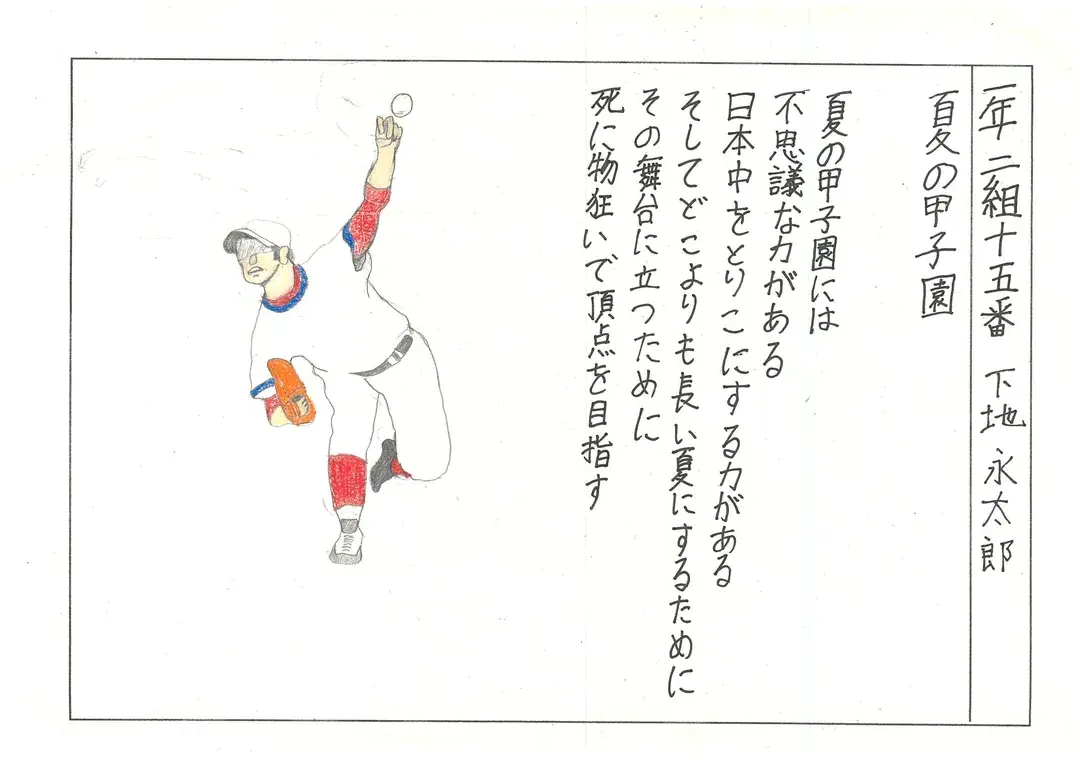 一年二組十五番 下地 永太郎
夏の甲子園
夏の甲子園には
不思議な力がある
日本中をとりこにする力がある
そしてどこよりも長い夏にするために
その舞台に立つために
死に物狂いで頂点を目指す